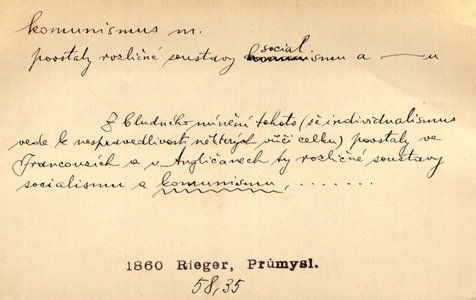 komunismus m.
social
povstaly rozličné soustavy komunismu a —u
Z bludného mínění tohoto (že individualismus
vede k nespravedlivosti některých vůči celku) povstaly ve
Francouzích a v Angličanech ty rozličné soustavy
socialismu a komunismu, .......
1860 Rieger, Průmysl.
58,35